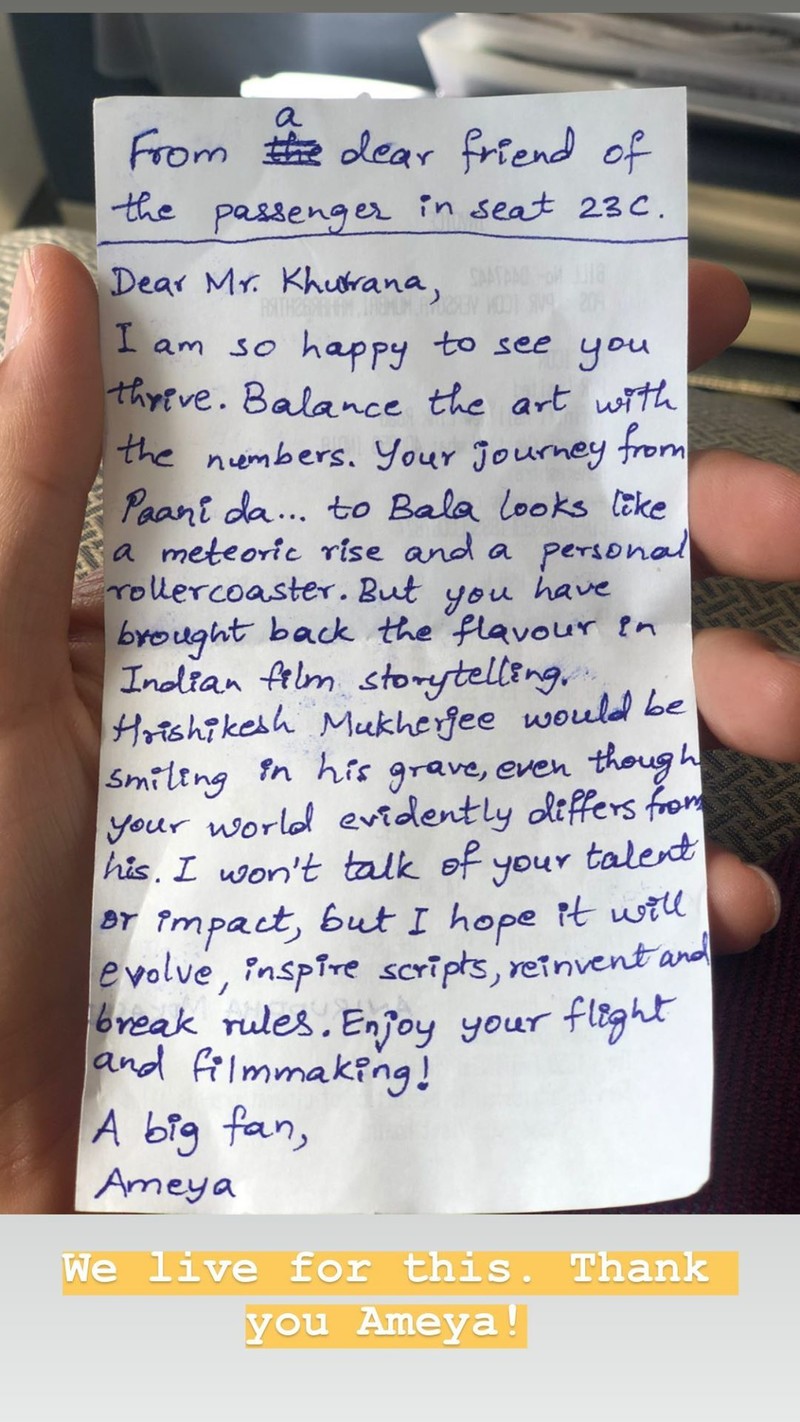 a
From the dear friend of
the passenger in seat 23C.
Dear Mr. Khurana,
I am so happy to see you
thrive. Balance the art with
the numbers. Your journey from
Paani da... to Bala looks like
a meteoric rise and a personal
rollercoaster. But you have
brought back the flavour in
Indian film storytelling.
Hrishikesh Mukherjee would be
smiling in his grave, even though
your world evidently differs from
his. I won't talk of your talent
or impact, but I hope it will
evolve, inspire scripts, reinvent and
break rules. Enjoy your flight
and filmmaking!
A big fan,
Ameya
We live for this. Thank
you Ameya!